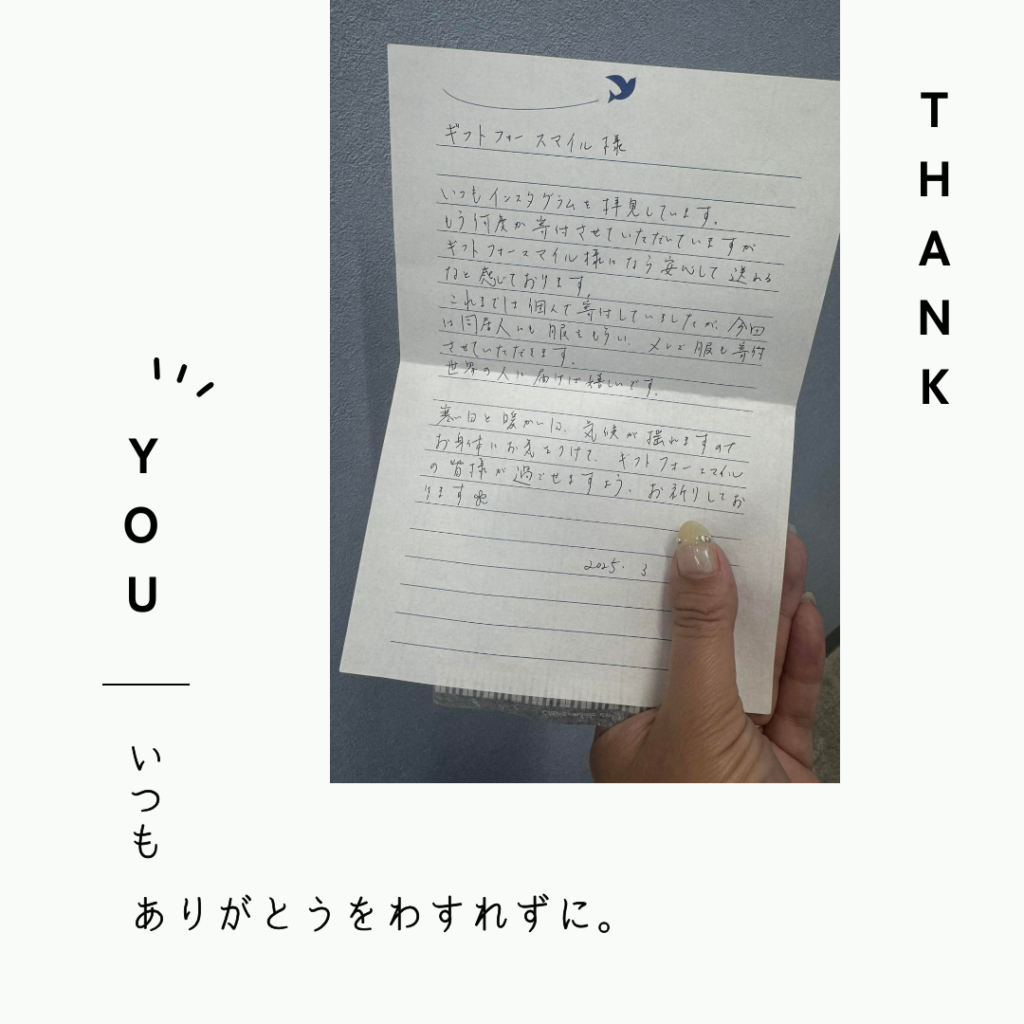 THANK
YOU
いつも
ありがとうをわすれずに。
ギフトフォースマイル様
いつもインスタグラムを拝見しています。
もう何度か寄付させていただいていますが
ギフトフォースマイル様になら安心して送れる
なと感じております。
これまでは個人で寄付していましたが、今回
は同居人にも服をもらい、メンズ服も寄付
させていただきます。
世界の人に届けば嬉しいです。
寒い日と暖かい日、気候が揺れますので
お身体にお気をつけて、ギフトフォースマイル
の皆様が過ごせますよう、お祈りしてお
ります
2025. 3